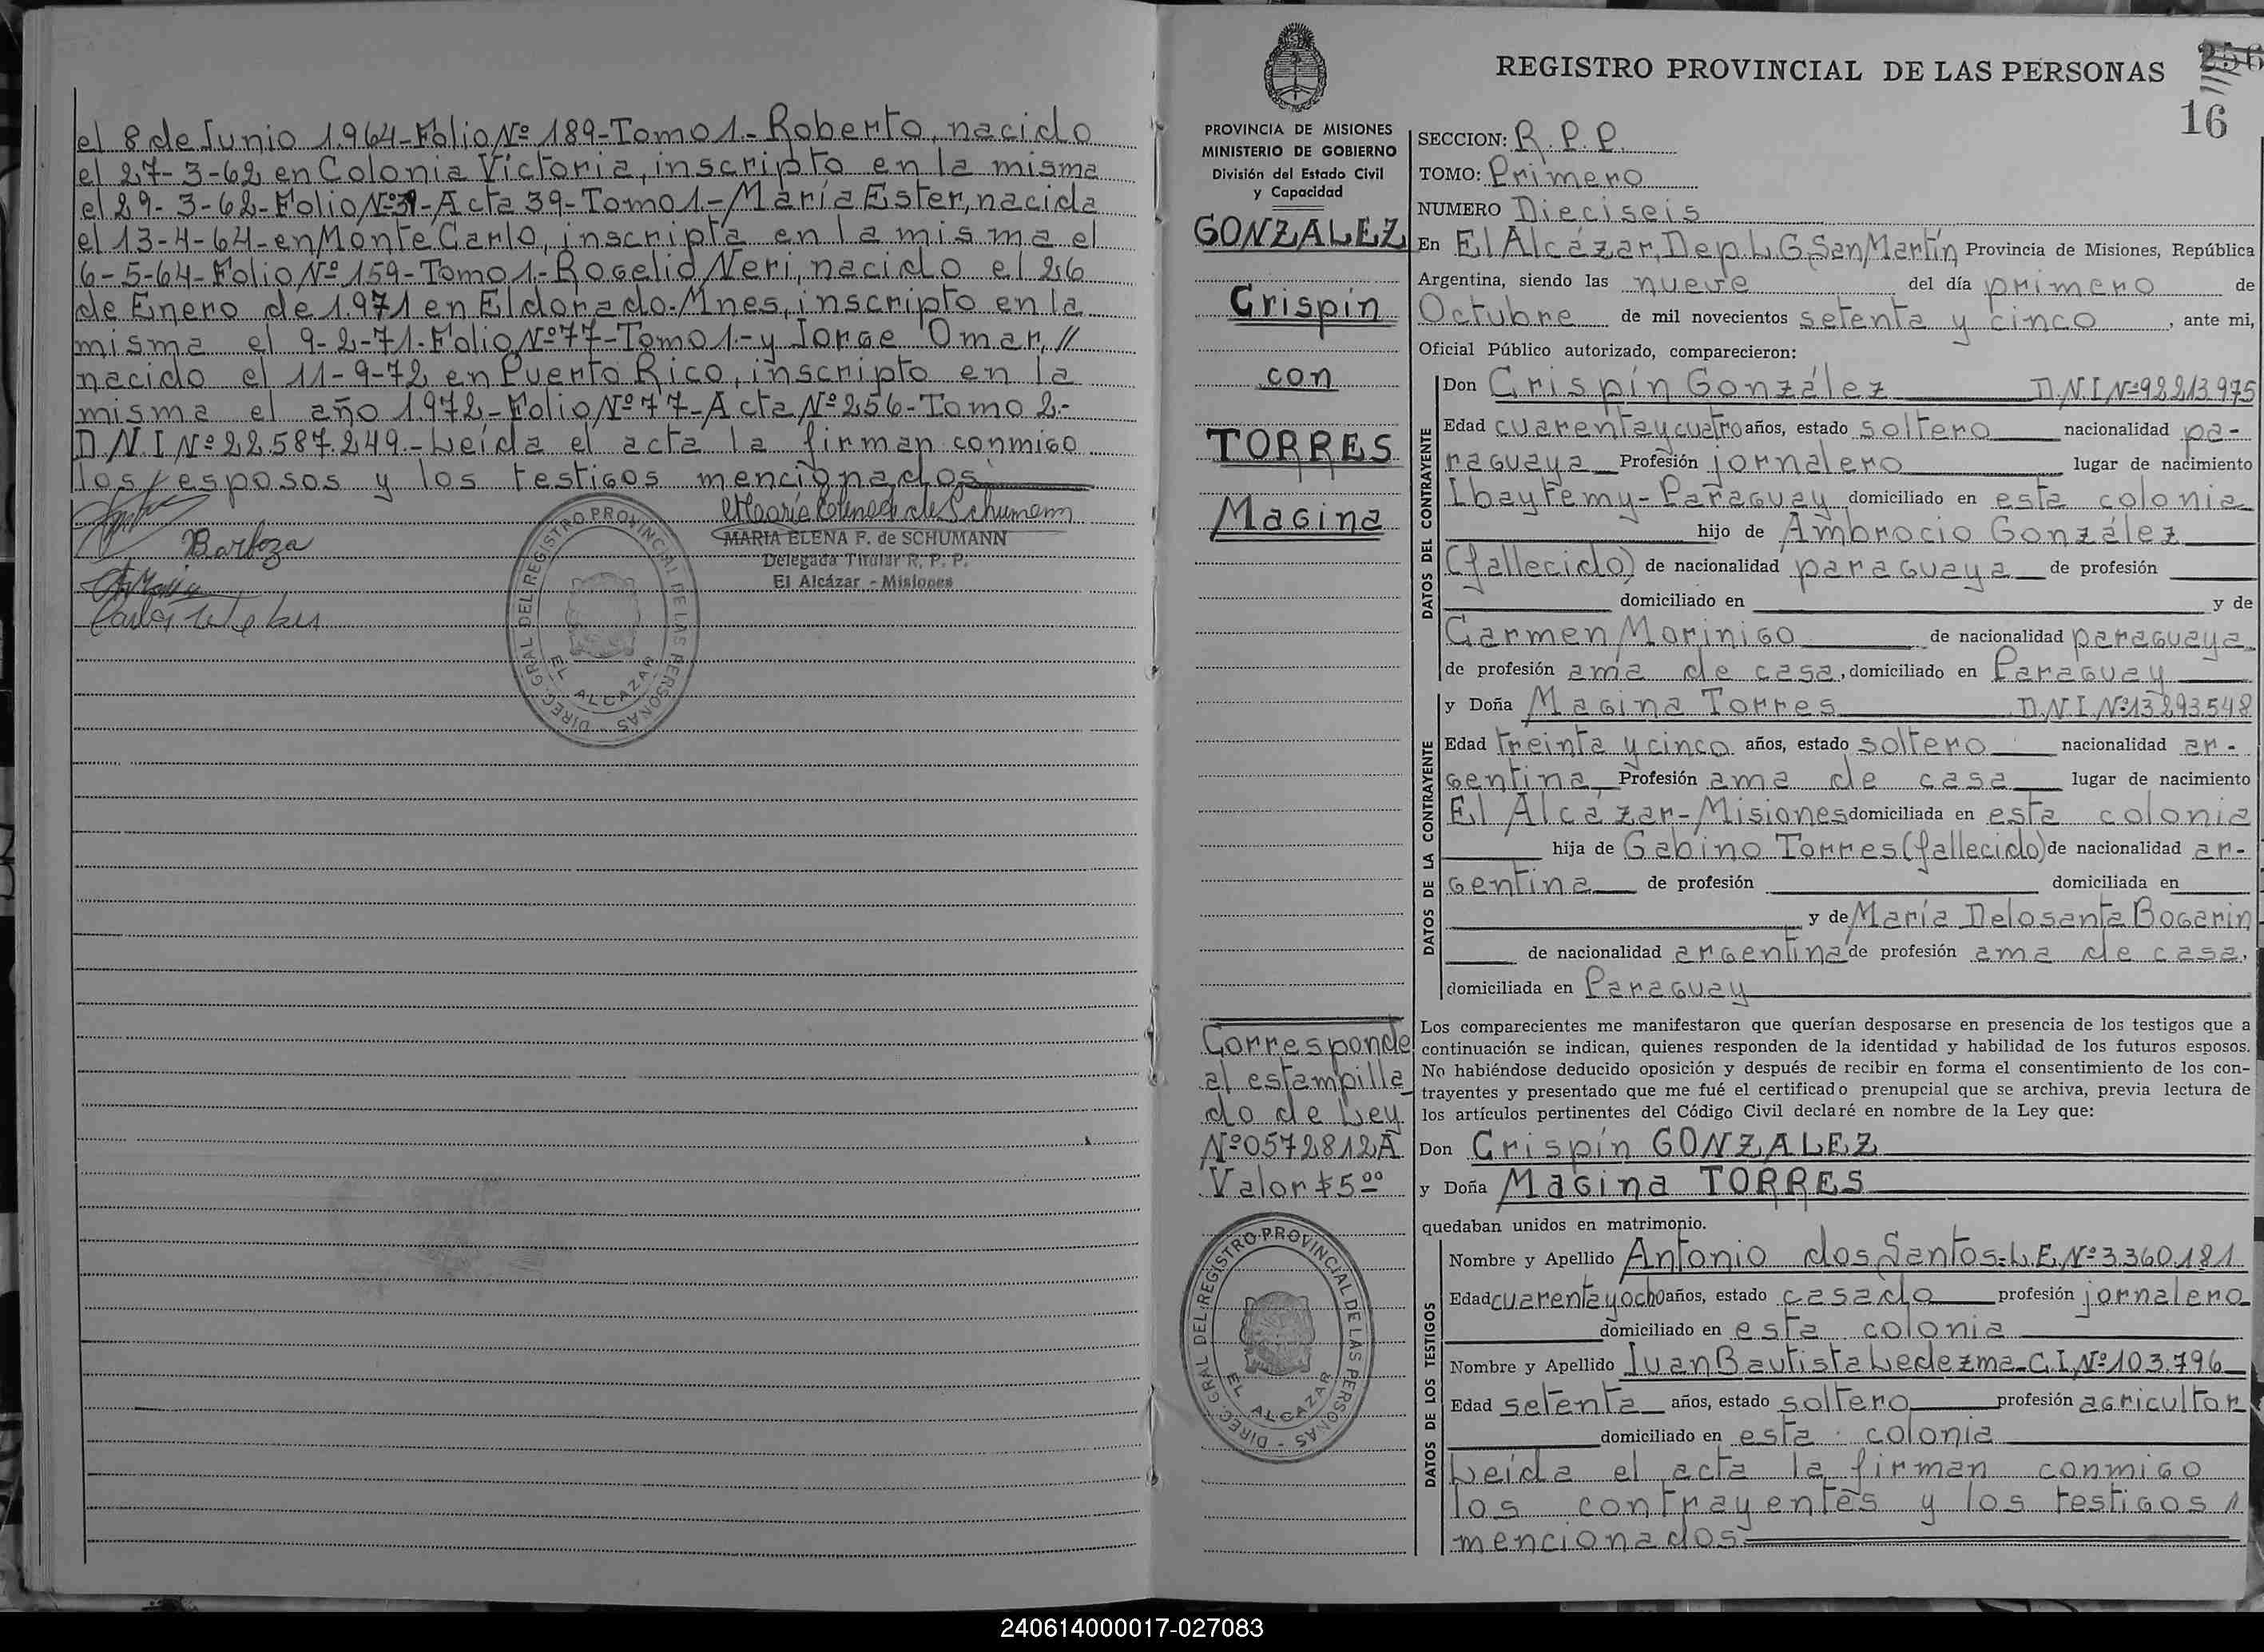 el 8 de Junio 1.964-Folio Nº 189-Tomo 1.- Roberto, nacido
el 27-3-62 en Colonia Victoria, inscripto en la misma
el 29-3-62-Folio Nº39-Acta 39-Tomo 1-María Ester, nacida
el 13-4-64-en Monte Carlo, inscripta en la misma el
6-5-64-Folio Nº 159-Tomo 1-Rogelio Neri, nacido el 26
de Enero de 1.971 en Eldorado-Mnes, inscripto en la
misma el 9-2-71-Folio Nº77-Tomo 1.-y Jorge Omar, //
nacido el 11-9-72 en Puerto Rico, inscripto en la
misma el año 1.972-Folio Nº 77-Acta Nº 256-Tomo 2.-
D.N.I Nº 22.587.249.-Leída el acta la firman conmigo
los esposos y los testigos mencionados
Barboza
Carlos
MARIA ELENA F. de SCHUMANN
Delegada Titular R. P. P.
El Alcázar - Misiones
DIREC. GRAL DEL REGISTRO PROVINCIAL DE LAS PERSONAS
EL ALCAZAR
REGISTRO PROVINCIAL DE LAS PERSONAS
256
16
PROVINCIA DE MISIONES
MINISTERIO DE GOBIERNO
División del Estado Civil
y Capacidad
GONZALEZ
Crispín
con
TORRES
Magina
Corresponde
al estampilla_
do de Ley
Nº0572812A
Valor $5.00
DIREC. GRAL DEL REGISTRO PROVINCIAL DE LAS PERSONAS
EL ALCAZAR
SECCION: R.P.P.
TOMO: Primero
NUMERO Dieciseis
En El Alcázar, Dep. L.G.San Martín Provincia de Misiones, República
Argentina, siendo las nueve del día primero de
Octubre de mil novecientos setenta y cinco, ante mi,
Oficial Público autorizado, comparecieron:
DATOS DEL CONTRAYENTE
Don Crispín González D.N.I Nº92213975
Edad cuarenta y cuatro años, estado soltero nacionalidad pa-
raguaya Profesión jornalero lugar de nacimiento
Ibaytemy-Paraguay domiciliado en esta colonia
hijo de Ambrocio González
(fallecido) de nacionalidad paraguaya de profesión
domiciliado en y de
Carmen Morinigo de nacionalidad paraguaya
de profesión ama de casa, domiciliado en Paraguay
DATOS DE LA CONTRAYENTE
y Doña Magina Torres D.N.I. Nº13293548
Edad treinta y cinco años, estado soltero nacionalidad ar-
gentina Profesión ama de casa lugar de nacimiento
El Alcázar-Misiones domiciliada en esta colonia
hija de Gabino Torres (fallecido) de nacionalidad ar-
gentina de profesión domiciliada en
y de María Delosanta Bogarin
de nacionalidad argentina de profesión ama de casa.
domiciliada en Paraguay
Los comparecientes me manifestaron que querían desposarse en presencia de los testigos que a
continuación se indican, quienes responden de la identidad y habilidad de los futuros esposos.
No habiéndose deducido oposición y después de recibir en forma el consentimiento de los con-
trayentes y presentado que me fué el certificado prenupcial que se archiva, previa lectura de
los artículos pertinentes del Código Civil declaré en nombre de la Ley que:
Don Crispín GONZALEZ
y Doña Magina TORRES
quedaban unidos en matrimonio.
DATOS DE LOS TESTIGOS
Nombre y Apellido Antonio dos Santos-L.E.Nº3.360.181
Edad cuarenta y ocho años, estado casado profesión jornalero
domiciliado en esta colonia
Nombre y Apellido Juan Bautista Ledezma-C.I.Nº103.796
Edad setenta años, estado soltero profesión agricultor
domiciliado en esta colonia
Leída el acta la firman conmigo
los contrayentes y los testigos //
mencionados
240614000017-027083